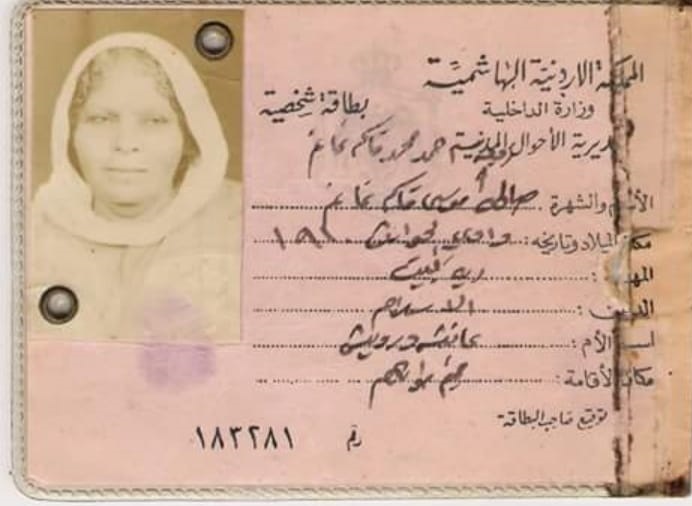 المملكة الاردنية الهاشمية
وزارة الداخلية
بطاقة شخصية
مديرية الأحوال المدنية حمد محمد قاسم غانم
الأسم والشهرة: صالحة موسى قاسم غانم
مكان الميلاد وتاريخه: وادي الحوارث ١٩٢٠
المهنة: ربة البيت
الديـن: الاسلام
اسم الأم: عائشه درويش
مكان الأقامة:
توقيع صاحب البطاقة
رقم ١٨٣٢٨١